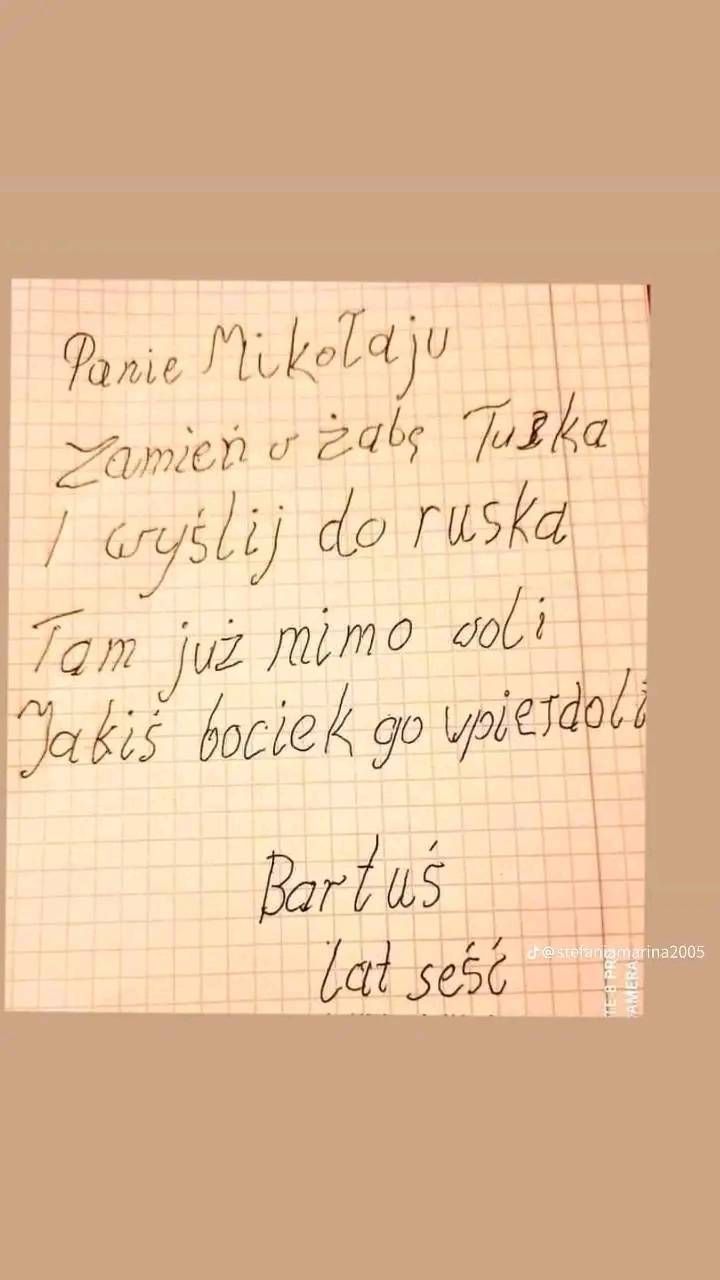 Panie Mikołaju
Zamień w żabę Tuska
I wyślij do ruska
Tam już mimo woli
Jakiś bociek go wpierdoli
Bartuś
lat seść
@stefaniamarina2005